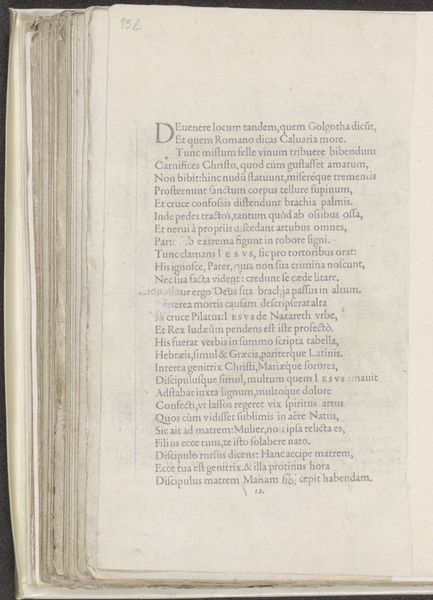 132
DEuenere locum tandem, quem Golgotha dicūt,
Et quem Romano dicas Caluaria more.
Tunc mistum felle vinum tribuere bibendum
Carnifices Christo, quod cùm gustasset amarum,
Non bibit: hinc nudū statuunt, miseréque trementis
Prosternunt sanctum corpus tellure supinum,
Et cruce confossis distendunt brachia palmis.
Inde pedes tractos, tantum quòd ab ossibus ossa,
Et nerui à propriis discedant artubus omnes,
Parte sub extrema figunt in robore ligni.
Tunc clamans IESVS, sic pro tortoribus orat:
His ignosce, Pater, quia non sua crimina noscunt,
Nec sua facta vident: credunt se cæde litare.
ergo Deus sua brachia passus in altum.
Præterea mortis causam descripserat alta
In cruce Pilatus: IESVS de Nazareth vrbe,
Et Rex Iudæûm pendens est iste profectò.
His fuerat verbis in summo scripta tabella,
Hebræis, simul & Græcis, pariterque Latinis.
Interea genitrix Christi, Mariæque sorores,
Discipulusque simul, multum quem IESVS amauit
Adstabat iuxta lignum, multoque dolore
Confecti, vt lassos regeret vix spiritus artus.
Quos cùm vidisset sublimis in aëre Natus,
Sic ait ad matrem: Mulier, non ipsa relicta es,
Filius ecce tuus, te isto solabere nato.
Discipulo rursus dicens: Hanc accipe matrem,
Ecce tua est genitrix. & illa protinus hora
Discipulus matrem Mariam sibi cepit habendam.
12.